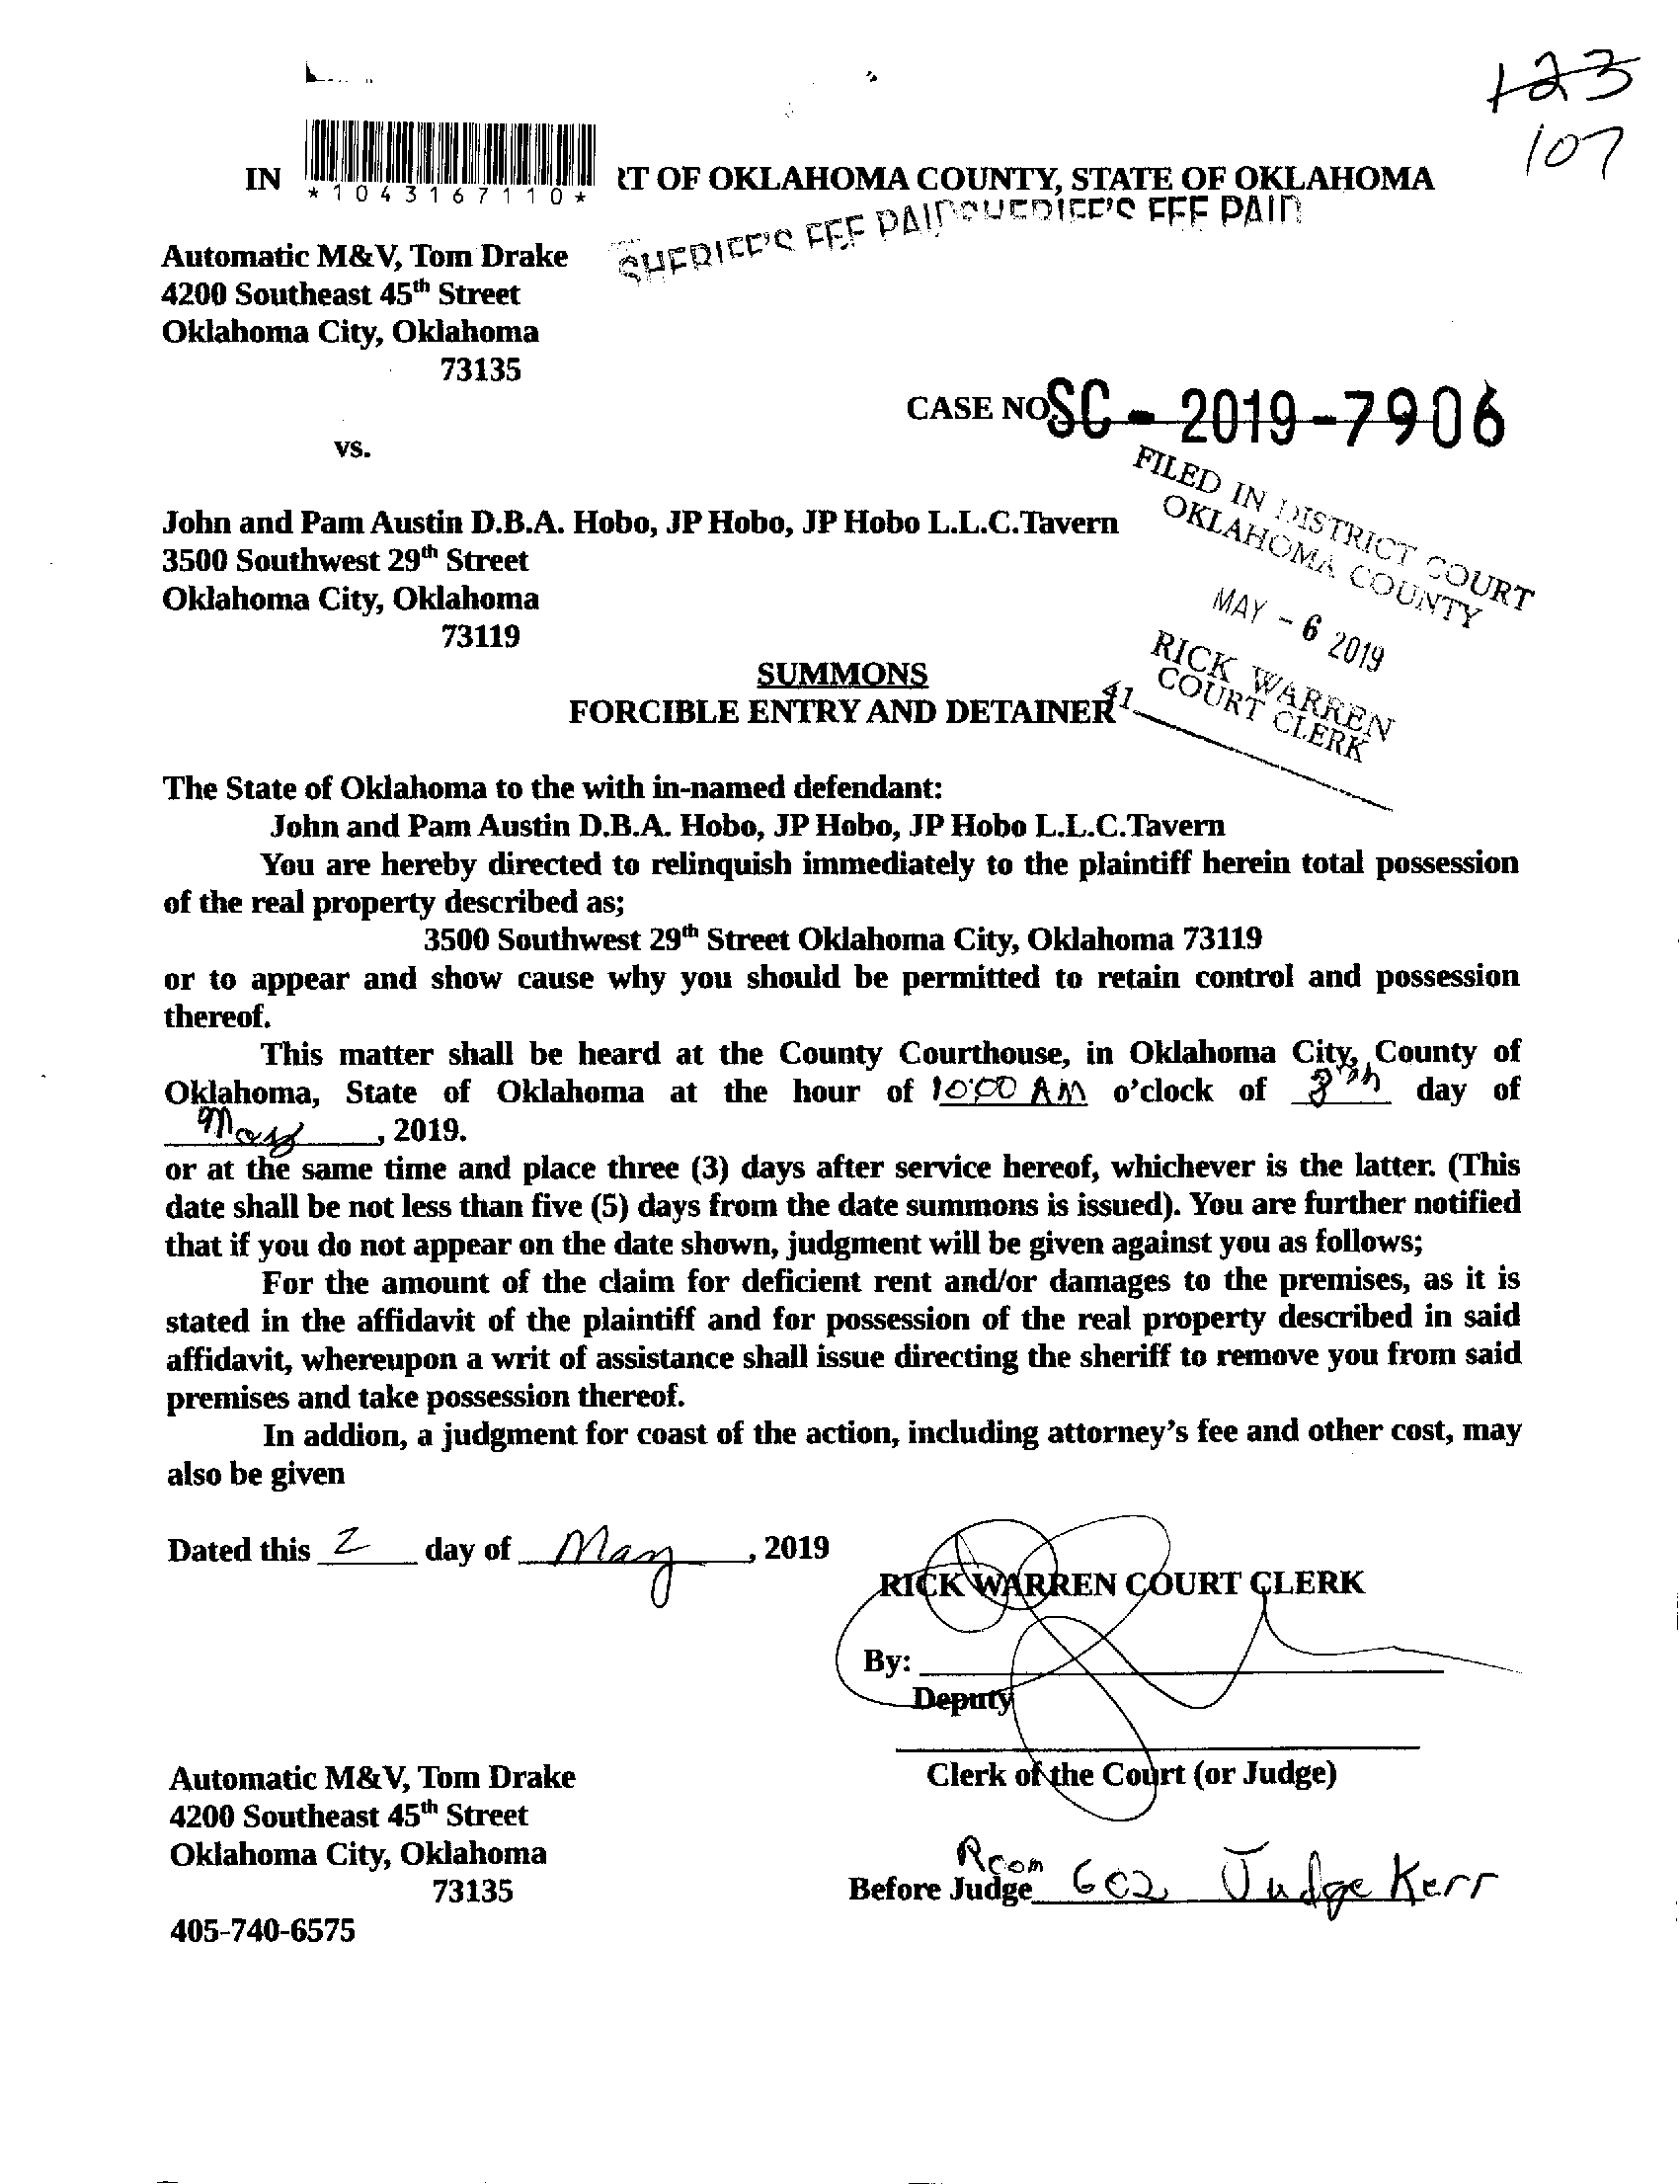 123
107
IN
*1043167110*
RT OF OKLAHOMA COUNTY, STATE OF OKLAHOMA
SHERIFF'S FEE PAID SHERIFF'S FEE PAID
Automatic M&V, Tom Drake
4200 Southeast 45th Street
Oklahoma City, Oklahoma
73135
CASE NO SC - 2019 - 7906
vs.
FILED IN DISTRICT COURT
OKLAHOMA COUNTY
John and Pam Austin D.B.A. Hobo, JP Hobo, JP Hobo L.L.C.Tavern
3500 Southwest 29th Street
Oklahoma City, Oklahoma
73119
MAY - 6 2019
RICK WARREN
COURT CLERK
41
SUMMONS
FORCIBLE ENTRY AND DETAINER
The State of Oklahoma to the with in-named defendant:
John and Pam Austin D.B.A. Hobo, JP Hobo, JP Hobo L.L.C.Tavern
You are hereby directed to relinquish immediately to the plaintiff herein total possession
of the real property described as;
3500 Southwest 29th Street Oklahoma City, Oklahoma 73119
or to appear and show cause why you should be permitted to retain control and possession
thereof.
This matter shall be heard at the County Courthouse, in Oklahoma City, County of
Oklahoma, State of Oklahoma at the hour of 10:00 AM o'clock of day of
May, 2019.
or at the same time and place three (3) days after service hereof, whichever is the latter. (This
date shall be not less than five (5) days from the date summons is issued). You are further notified
that if you do not appear on the date shown, judgment will be given against you as follows;
For the amount of the claim for deficient rent and/or damages to the premises, as it is
stated in the affidavit of the plaintiff and for possession of the real property described in said
affidavit, whereupon a writ of assistance shall issue directing the sheriff to remove you from said
premises and take possession thereof.
In addion, a judgment for coast of the action, including attorney's fee and other cost, may
also be given
Dated this 2 day of May, 2019
RICK WARREN COURT CLERK
By:
Deputy
Clerk of the Court (or Judge)
Automatic M&V, Tom Drake
4200 Southeast 45th Street
Oklahoma City, Oklahoma
73135
405-740-6575
Room
Before Judge 602 Judge Kerr